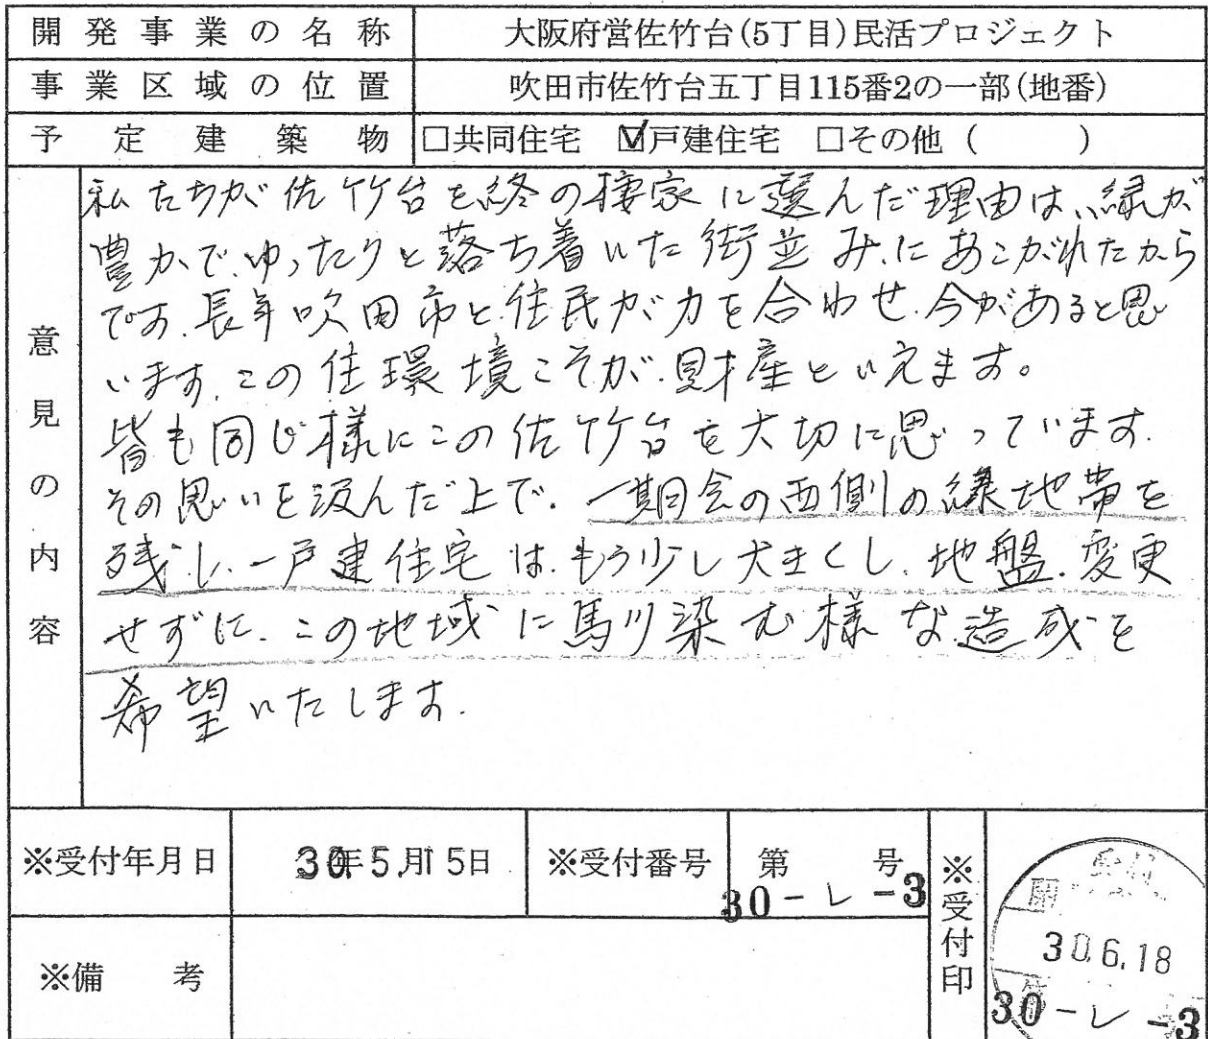 開発事業の名称 大阪府営佐竹台(5丁目)民活プロジェクト
事業区域の位置 吹田市佐竹台五丁目115番2の一部(地番)
予定建築物 □共同住宅 ☑戸建住宅 □その他( )
意見の内容
私たちが佐竹台を終の棲家に選んだ理由は、緑が
豊かで、ゆったりと落ち着いた街並み、にあこがれたから
です。長年吹田市と住民が力を合わせ、今があると思
います。この住環境こそが、財産といえます。
皆も同じ様にこの佐竹台を大切に思っています。
その思いを汲んだ上で、一期会の西側の緑地帯を
残し、一戸建住宅は、もう少し大きくし、地盤、変更
せずに、この地域に馴染む様な造成を
希望いたします。
※受付年月日 30年5月15日 ※受付番号 第 号
30-レ-3
※受付印
受付
30.6.18
30-レ-3
※備考